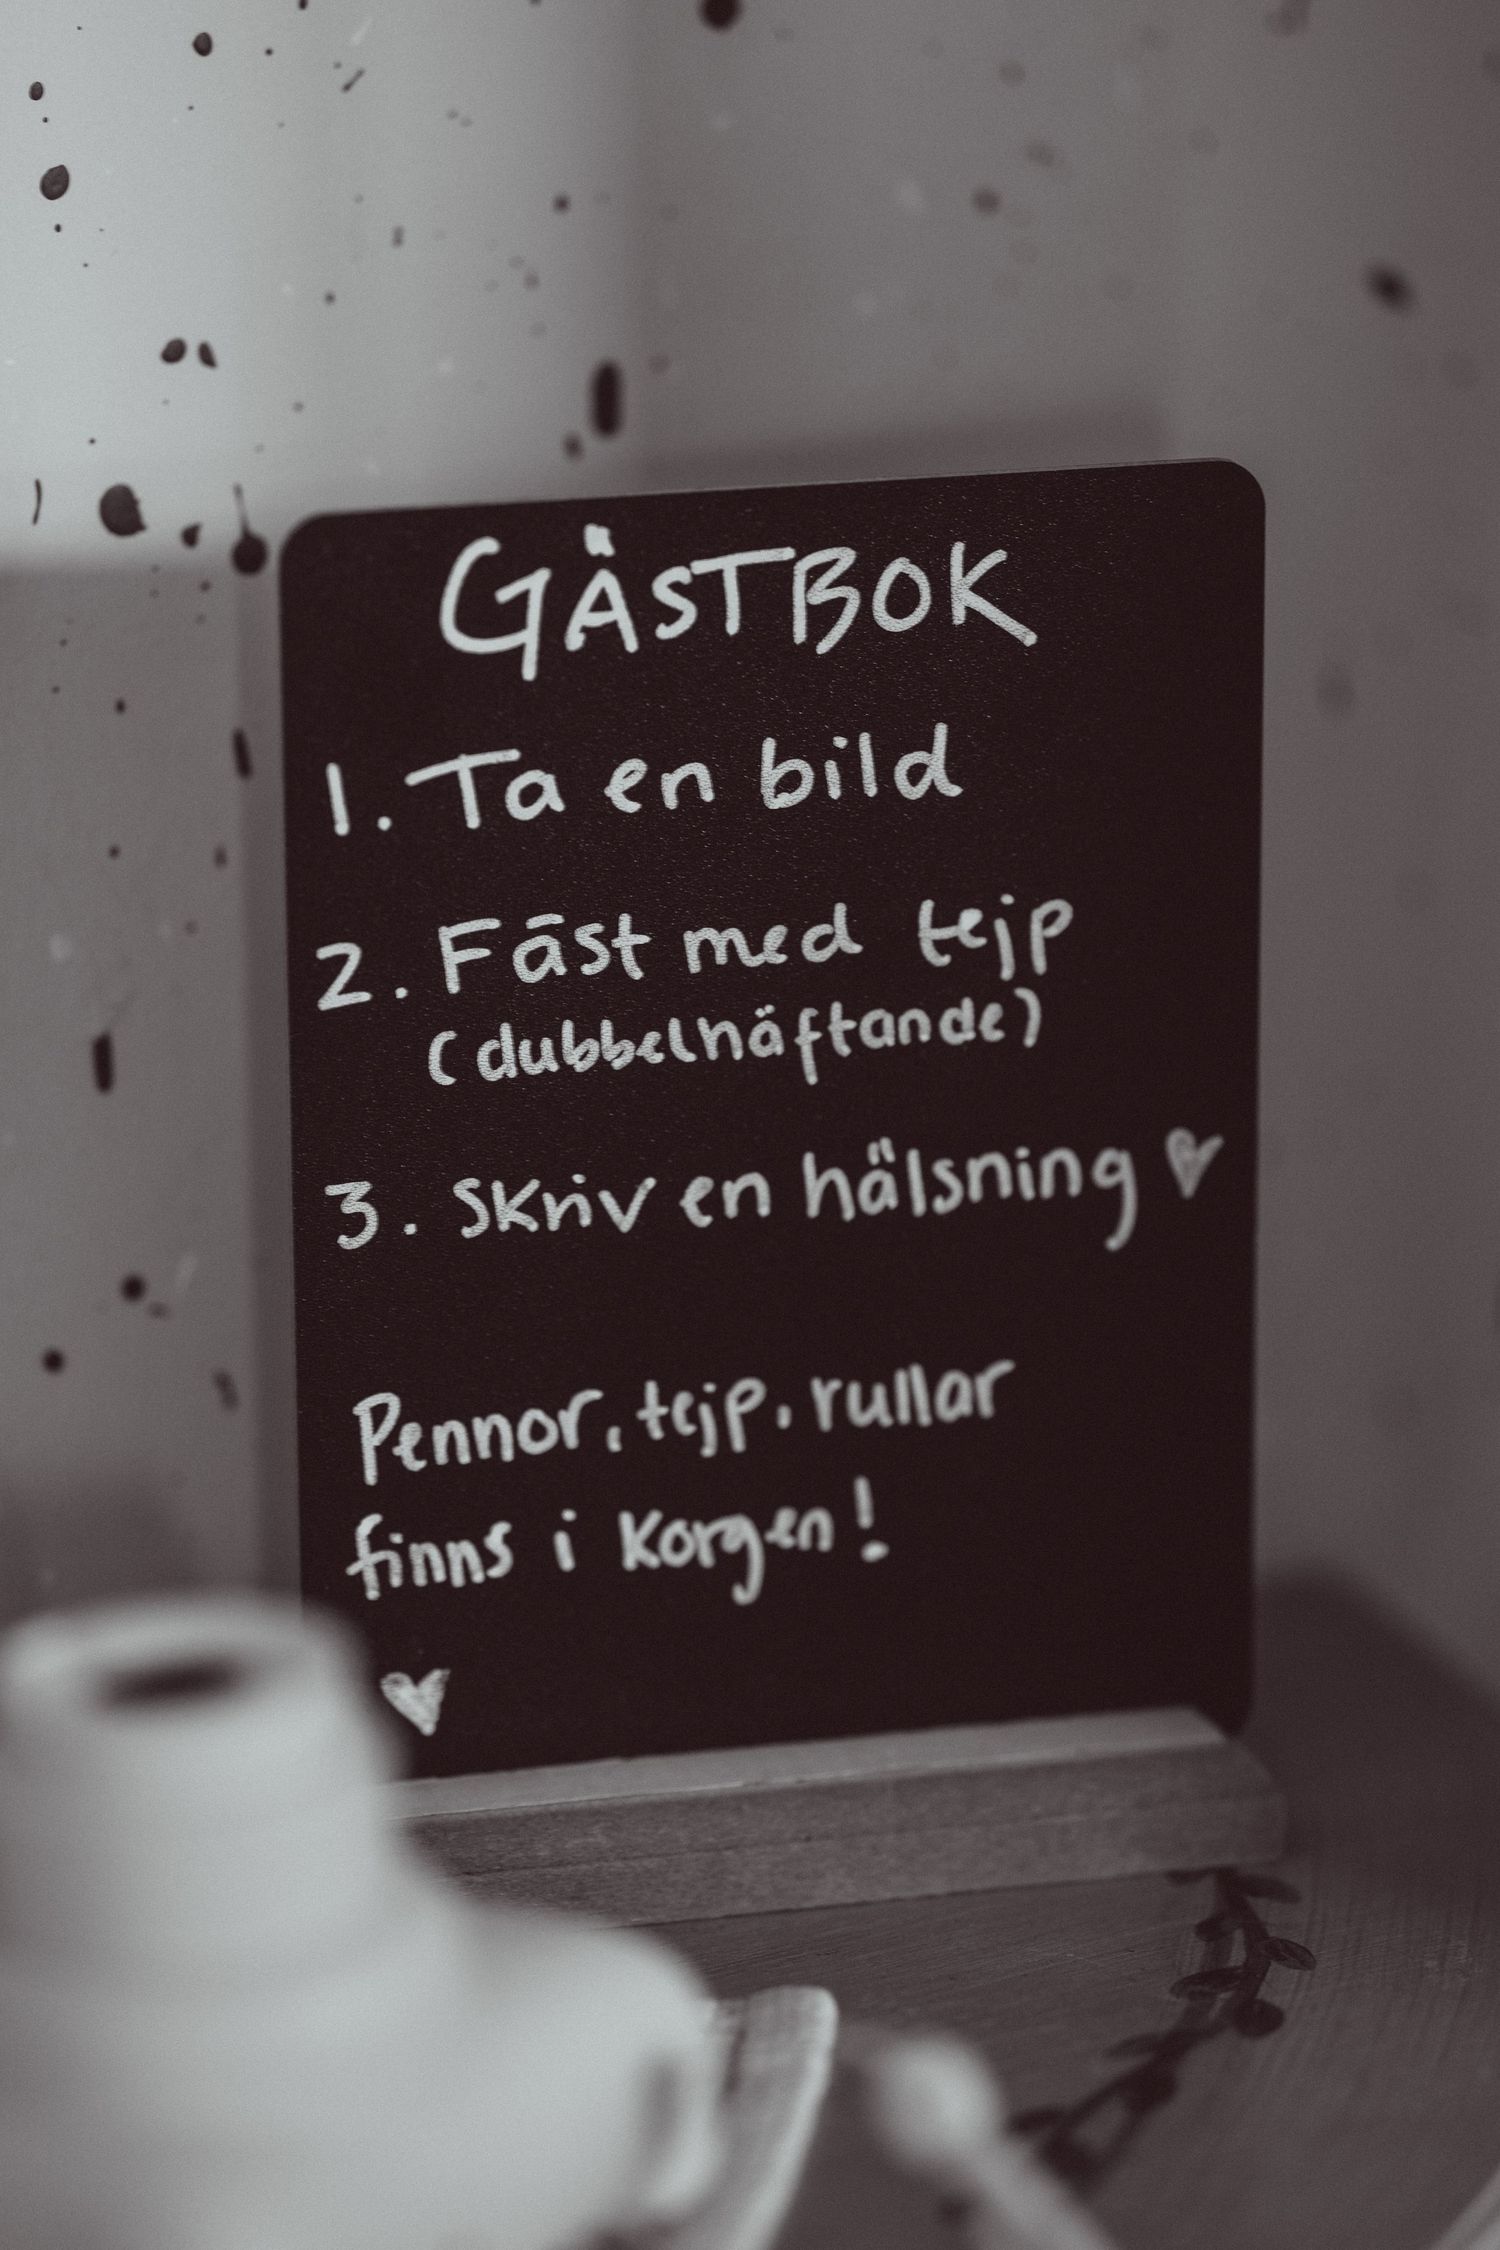 GÄSTBOK
1. Ta en bild
2. Fäst med tejp
(dubbelhäftande)
3. Skriv en hälsning ♥
Pennor, tejp, rullar
finns i korgen!
♥